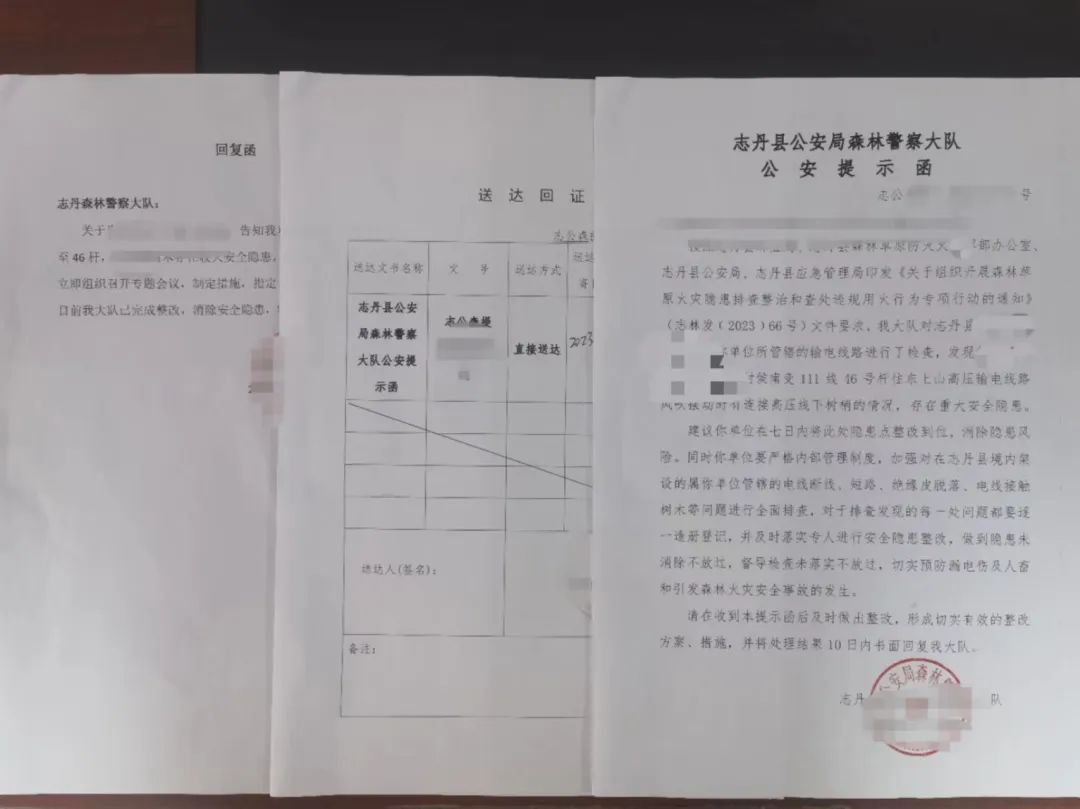 回复函
志丹森林警察大队：
关于 告知我
至46杆， 安全隐患，
立即组织召开专题会议，制定措施，指定
目前我大队已完成整改，消除安全隐患，
送 达 回 证
志公森
送达文书名称 文 号 送达方式 送达
志丹县公安
局森林警察
大队公安提
示函
志公森提
号
直接送达
2023
送达人(签名)：
备注：
志丹县公安局森林警察大队
公 安 提 示 函
志公 号
县森林草原防灭火 部办公室、
志丹县公安局、志丹县应急管理局印发《关于组织开展森林草
原火灾隐患排查整治和查处违规用火行为专项行动的通知》
（志林发〔2023〕66号）文件要求，我大队对志丹县
你单位所管辖的输电线路进行了检查，发现
111线46号杆往东上山高压输电线路
风吹摆动时有连接高压线下树梢的情况，存在重大安全隐患。
建议你单位在七日内将此处隐患点整改到位，消除隐患风
险。同时你单位要严格内部管理制度，加强对在志丹县境内架
设的属你单位管辖的电线断线、短路、绝缘皮脱落、电线接触
树木等问题进行全面排查，对于排查发现的每一处问题都要逐
一造册登记，并及时落实专人进行安全隐患整改，做到隐患未
消除不放过，督导检查未落实不放过，切实预防漏电伤及人畜
和引发森林火灾安全事故的发生。
请在收到本提示函后及时做出整改，形成切实有效的整改
方案、措施，并将处理结果10日内书面回复我大队。
公安局森林
志丹 队